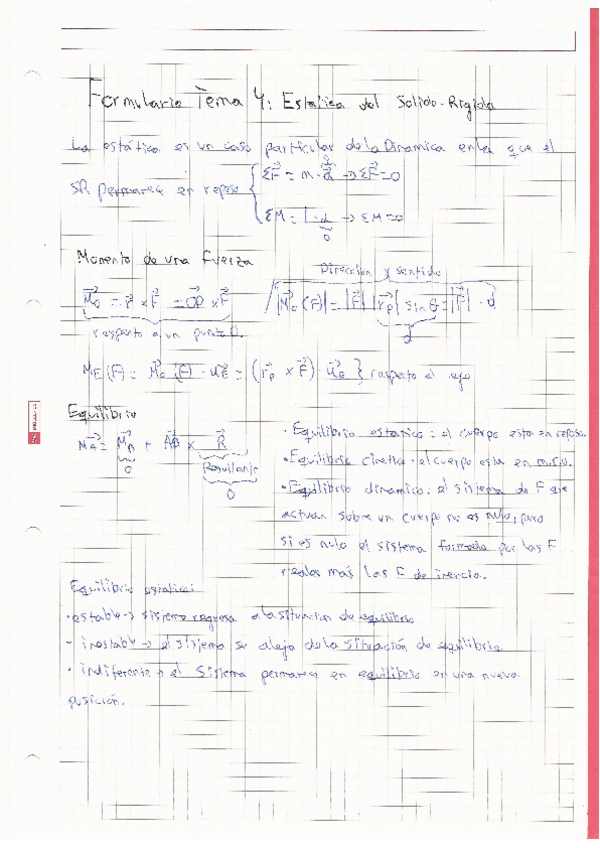 Formulario Tema 4: Estatica del Solido-Rigido
La estática es un caso particular de la Dinamica en la que el
SR permanece en reposo { ΣF⃗ = m · a⃗ → ΣF⃗ = 0
0
ΣM = I · α → ΣM = 0
0
Momento de una fuerza
Dirección y sentido
M⃗o = r⃗ x F⃗ = OP⃗ x F⃗
|M⃗o (F)| = |F⃗| |r⃗p| sin θ = |F⃗| · d
respecto a un punto O.
d
ME (F) = M⃗o (F) · u⃗E = (r⃗p x F⃗) · u⃗E } respecto al eje
Equilibrio
M⃗A = M⃗B + AB⃗ x R⃗
0
Resultante
0
· Equilibrio estatico: el cuerpo esta en reposo.
· Equilibrio cinetico: el cuerpo esta en m.r.u.
· Equilibrio dinamico: el sistema de F que
actuan sobre un cuerpo no es nulo, pero
si es nulo el sistema formado por las F
reales más las F de inercia.
Equilibrio estatico:
· estable → sistema regresa a la situacion de equilibrio
- inestable → el sistema se aleja de la situación de equilibrio
· indiferente → el sistema permanece en equilibrio en una nueva
posición.